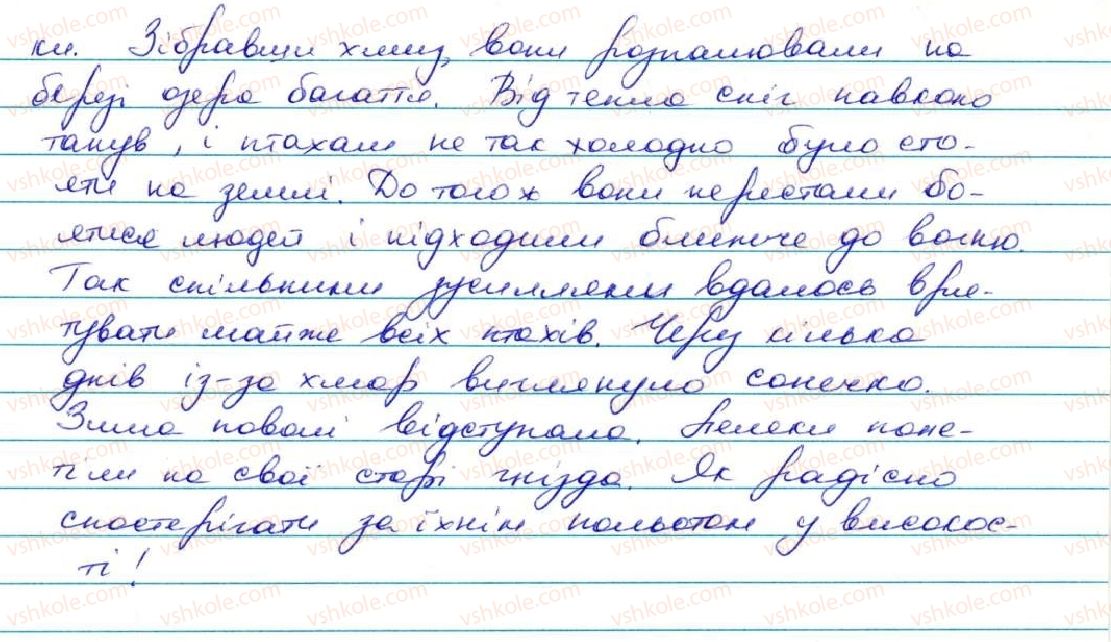 ки. Зібравши хмиз, вони розпалювали на
березі озера багаття. Від тепла сніг навколо
танув, і птахам не так холодно було сто-
яти на землі. До того ж вони перестали бо-
ятися людей і підходили ближче до вогню.
Так спільними зусиллями вдалось вря-
тувати майже всіх птахів. Через кілька
днів із-за хмар виглянуло сонечко.
Зима поволі відступала. Лелеки поле-
тіли на свої старі гнізда. Як радісно
спостерігати за їхнім польотом у високос-
ті!